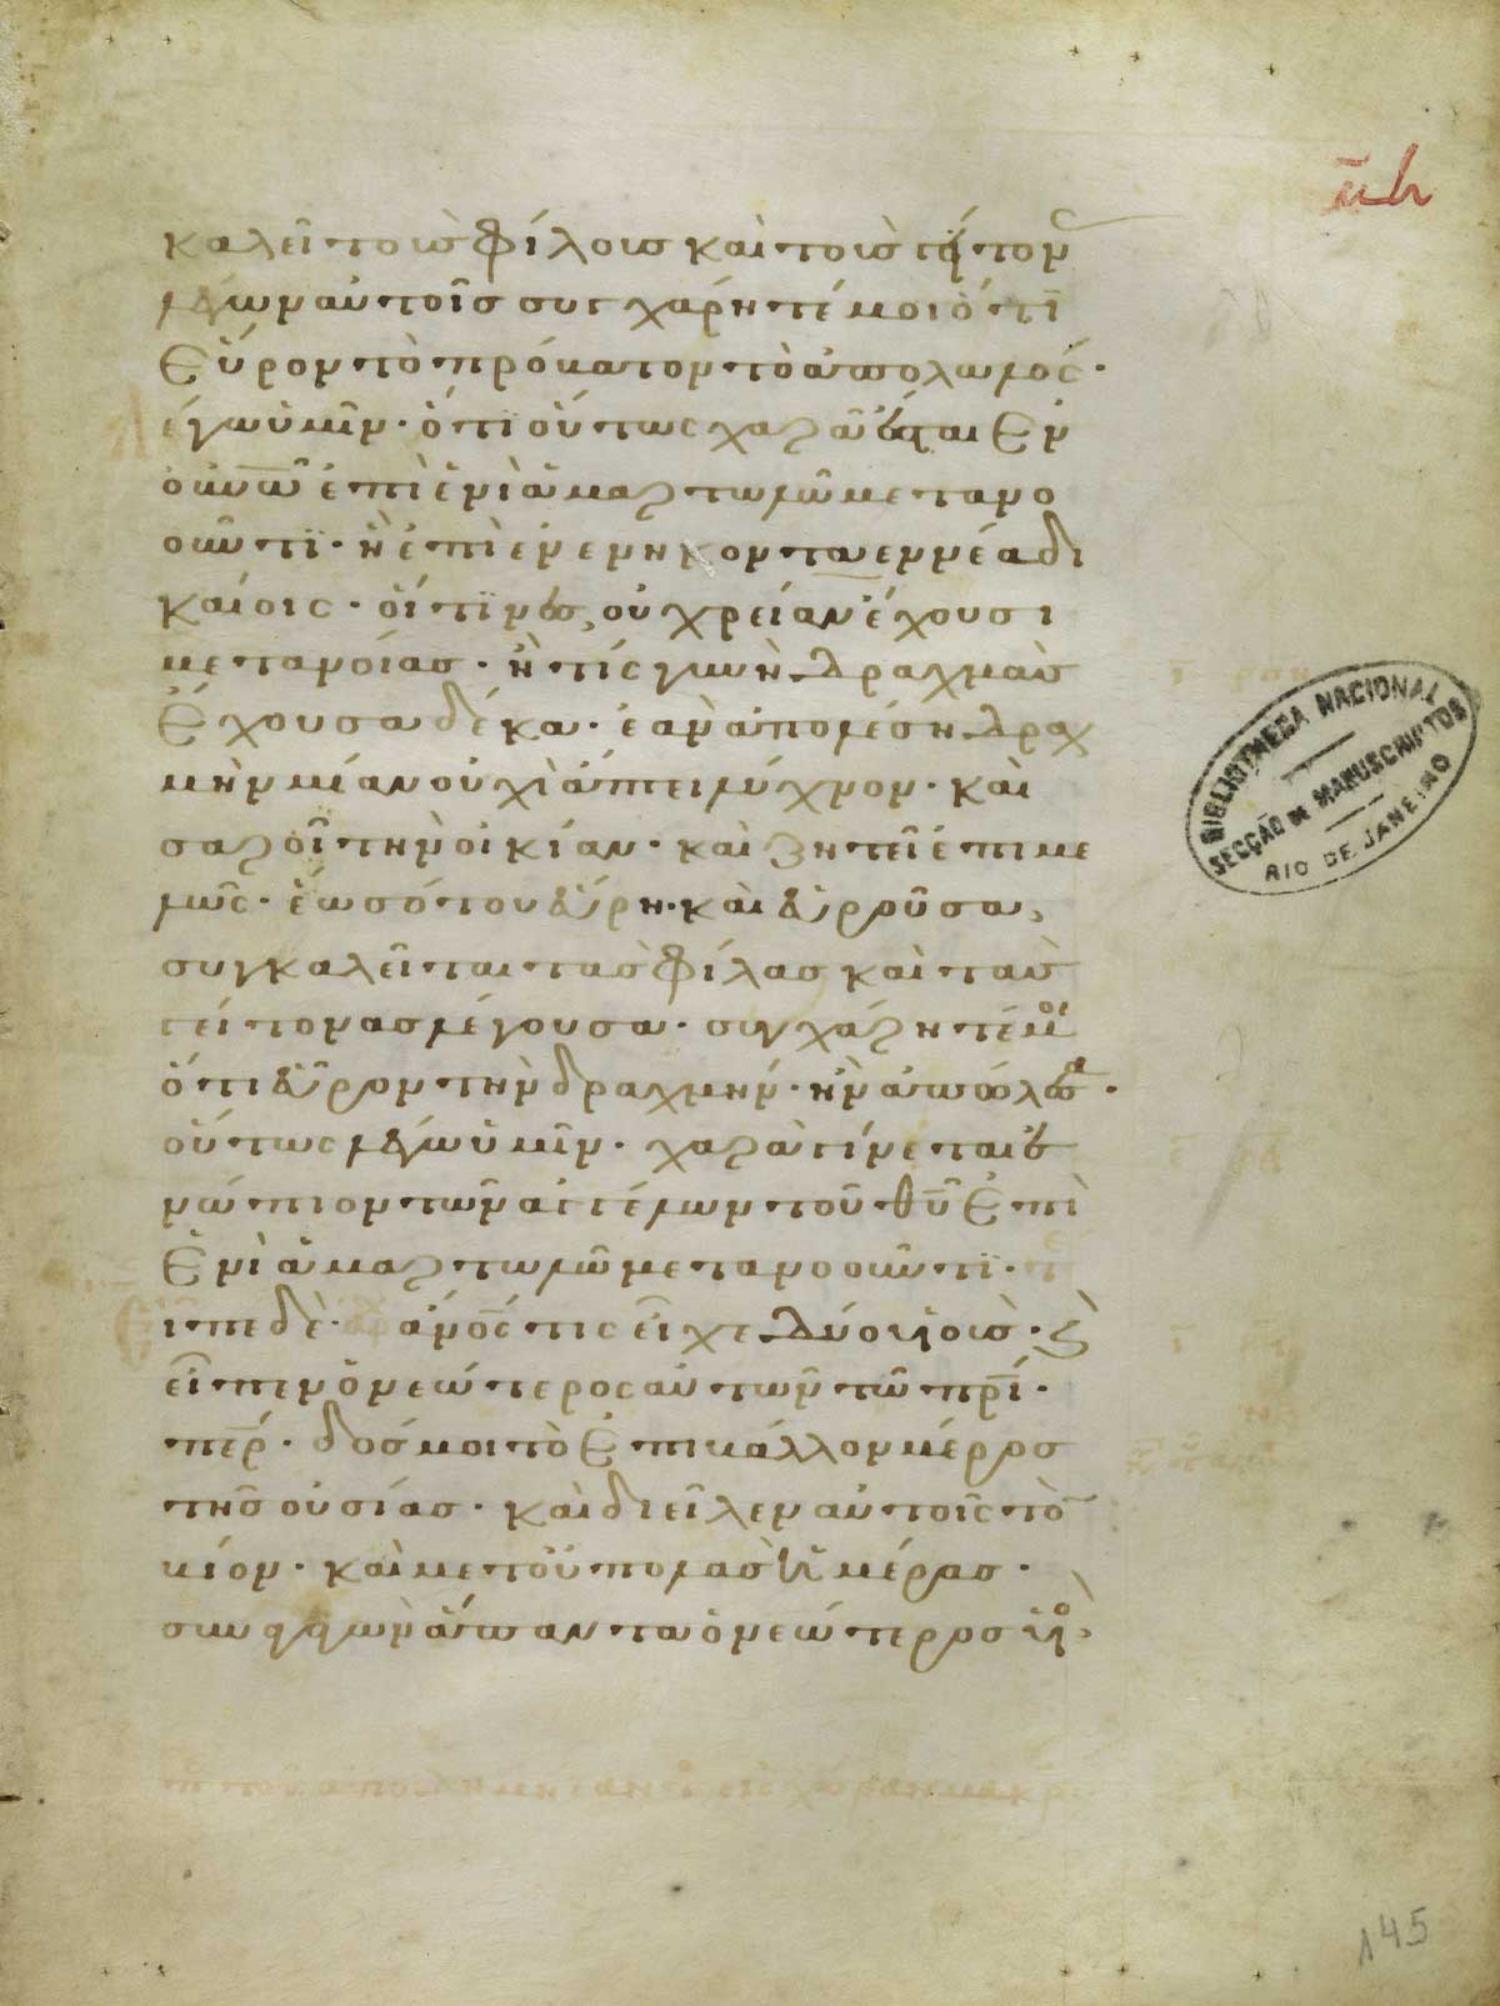 καλεῖ τοὺς φίλους καὶ τοὺς γείτον
λέγων αὐτοῖς συγχάρητέ μοι ὅτι
εὗρον τὸ πρόβατον τὸ ἀπολωλός·
λέγω ὑμῖν· ὅτι οὕτως χαρὰ ἔσται ἐν
οὐνῶ ἐπὶ ἑνὶ ἁμαρτωλῶ μετανο
οῦντι· ἢ ἐπὶ ἐνενήκοντα εννέα δι
καίοις· οἵτινες οὐ χρείαν ἔχουσι
μετανοίας· ἢ τίς γυνὴ δραχμὰς
ἔχουσα δέκα· ἐὰν ἀπολέση δραχ
μὴν μίαν οὐχὶ ἅπτει λύχνον· καὶ
σαροῖ τὴν οἰκίαν· καὶ ζητεῖ ἐπιμε
λῶς· ἕως ὅτου εὕρη· καὶ εὑροῦσα,
συγκαλεῖται τὰς φίλας καὶ τὰς
γείτονας λέγουσα· συγχάρητέ μοι
ὅτι εὗρον τὴν δραχμήν· ἣν ἀπώλεσα·
οὕτως λέγω ὑμῖν· χαρὰ γίνεται ἐ
νώπιον τῶν ἀγγέλων τοῦ θῦ ἐπὶ
ἑνὶ ἁμαρτωλῶ μετανοοῦντι·
εἶπε δὲ· ἄνός τις εἶχε δύο υἱούς· καὶ
εἶπεν ὁ νεώτερος αὐτῶν τῶ πρί·
πέρ· δός μοι τὸ ἐπιβάλλον μέρος
τῆς οὐσίας· καὶ διεῖλεν αὐτοῖς τὸν
βίον· καὶ μετ οὐ πολλὰς ἡμέρας·
συναγαγὼν ἅπαντα ὁ νεώτερος υἱὸς
BIBLIOTHECA NACIONAL
SECÇÃO DE MANUSCRIPTOS
RIO DE JANEIRO
145